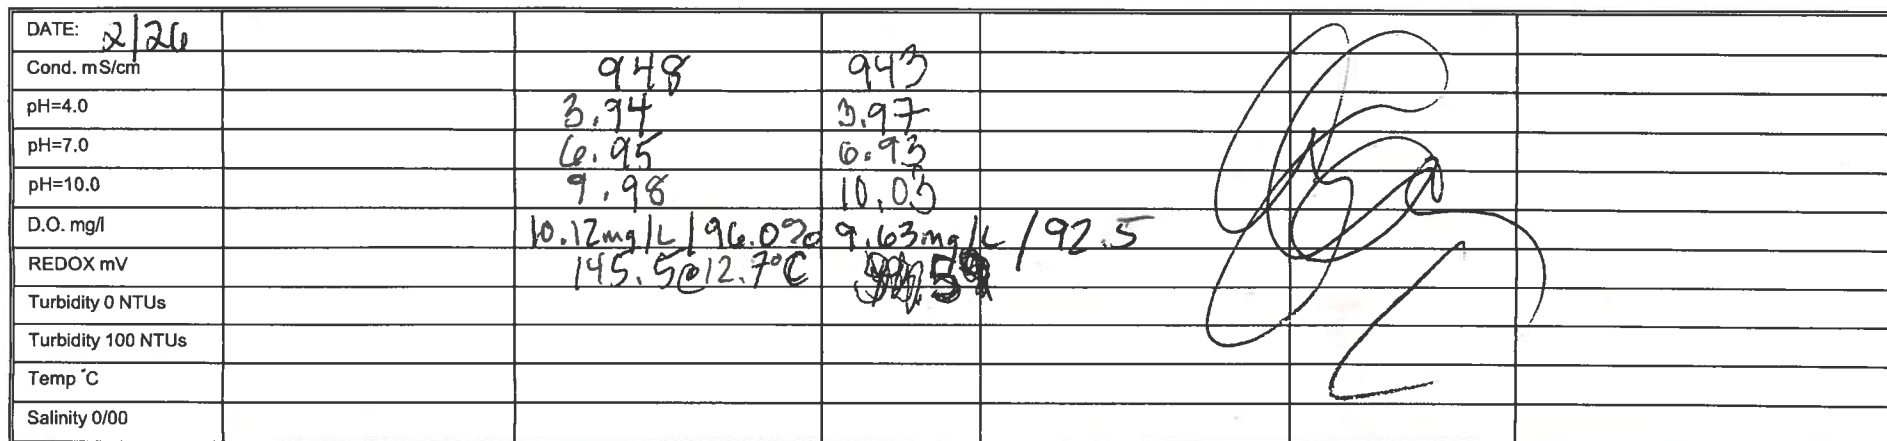 DATE: 2/26
Cond. mS/cm 948 943
pH=4.0 3.94 3.97
pH=7.0 6.95 6.93
pH=10.0 9.98 10.03
D.O. mg/l 10.12mg/L/96.0% 9.63mg/L/92.5
REDOX mV 145.5@12.7°C
Turbidity 0 NTUs
Turbidity 100 NTUs
Temp °C
Salinity 0/00